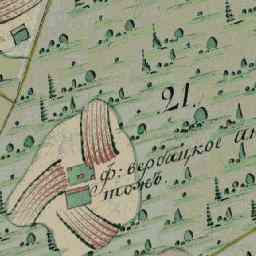 21.
ф: вербацкое
тожъ.